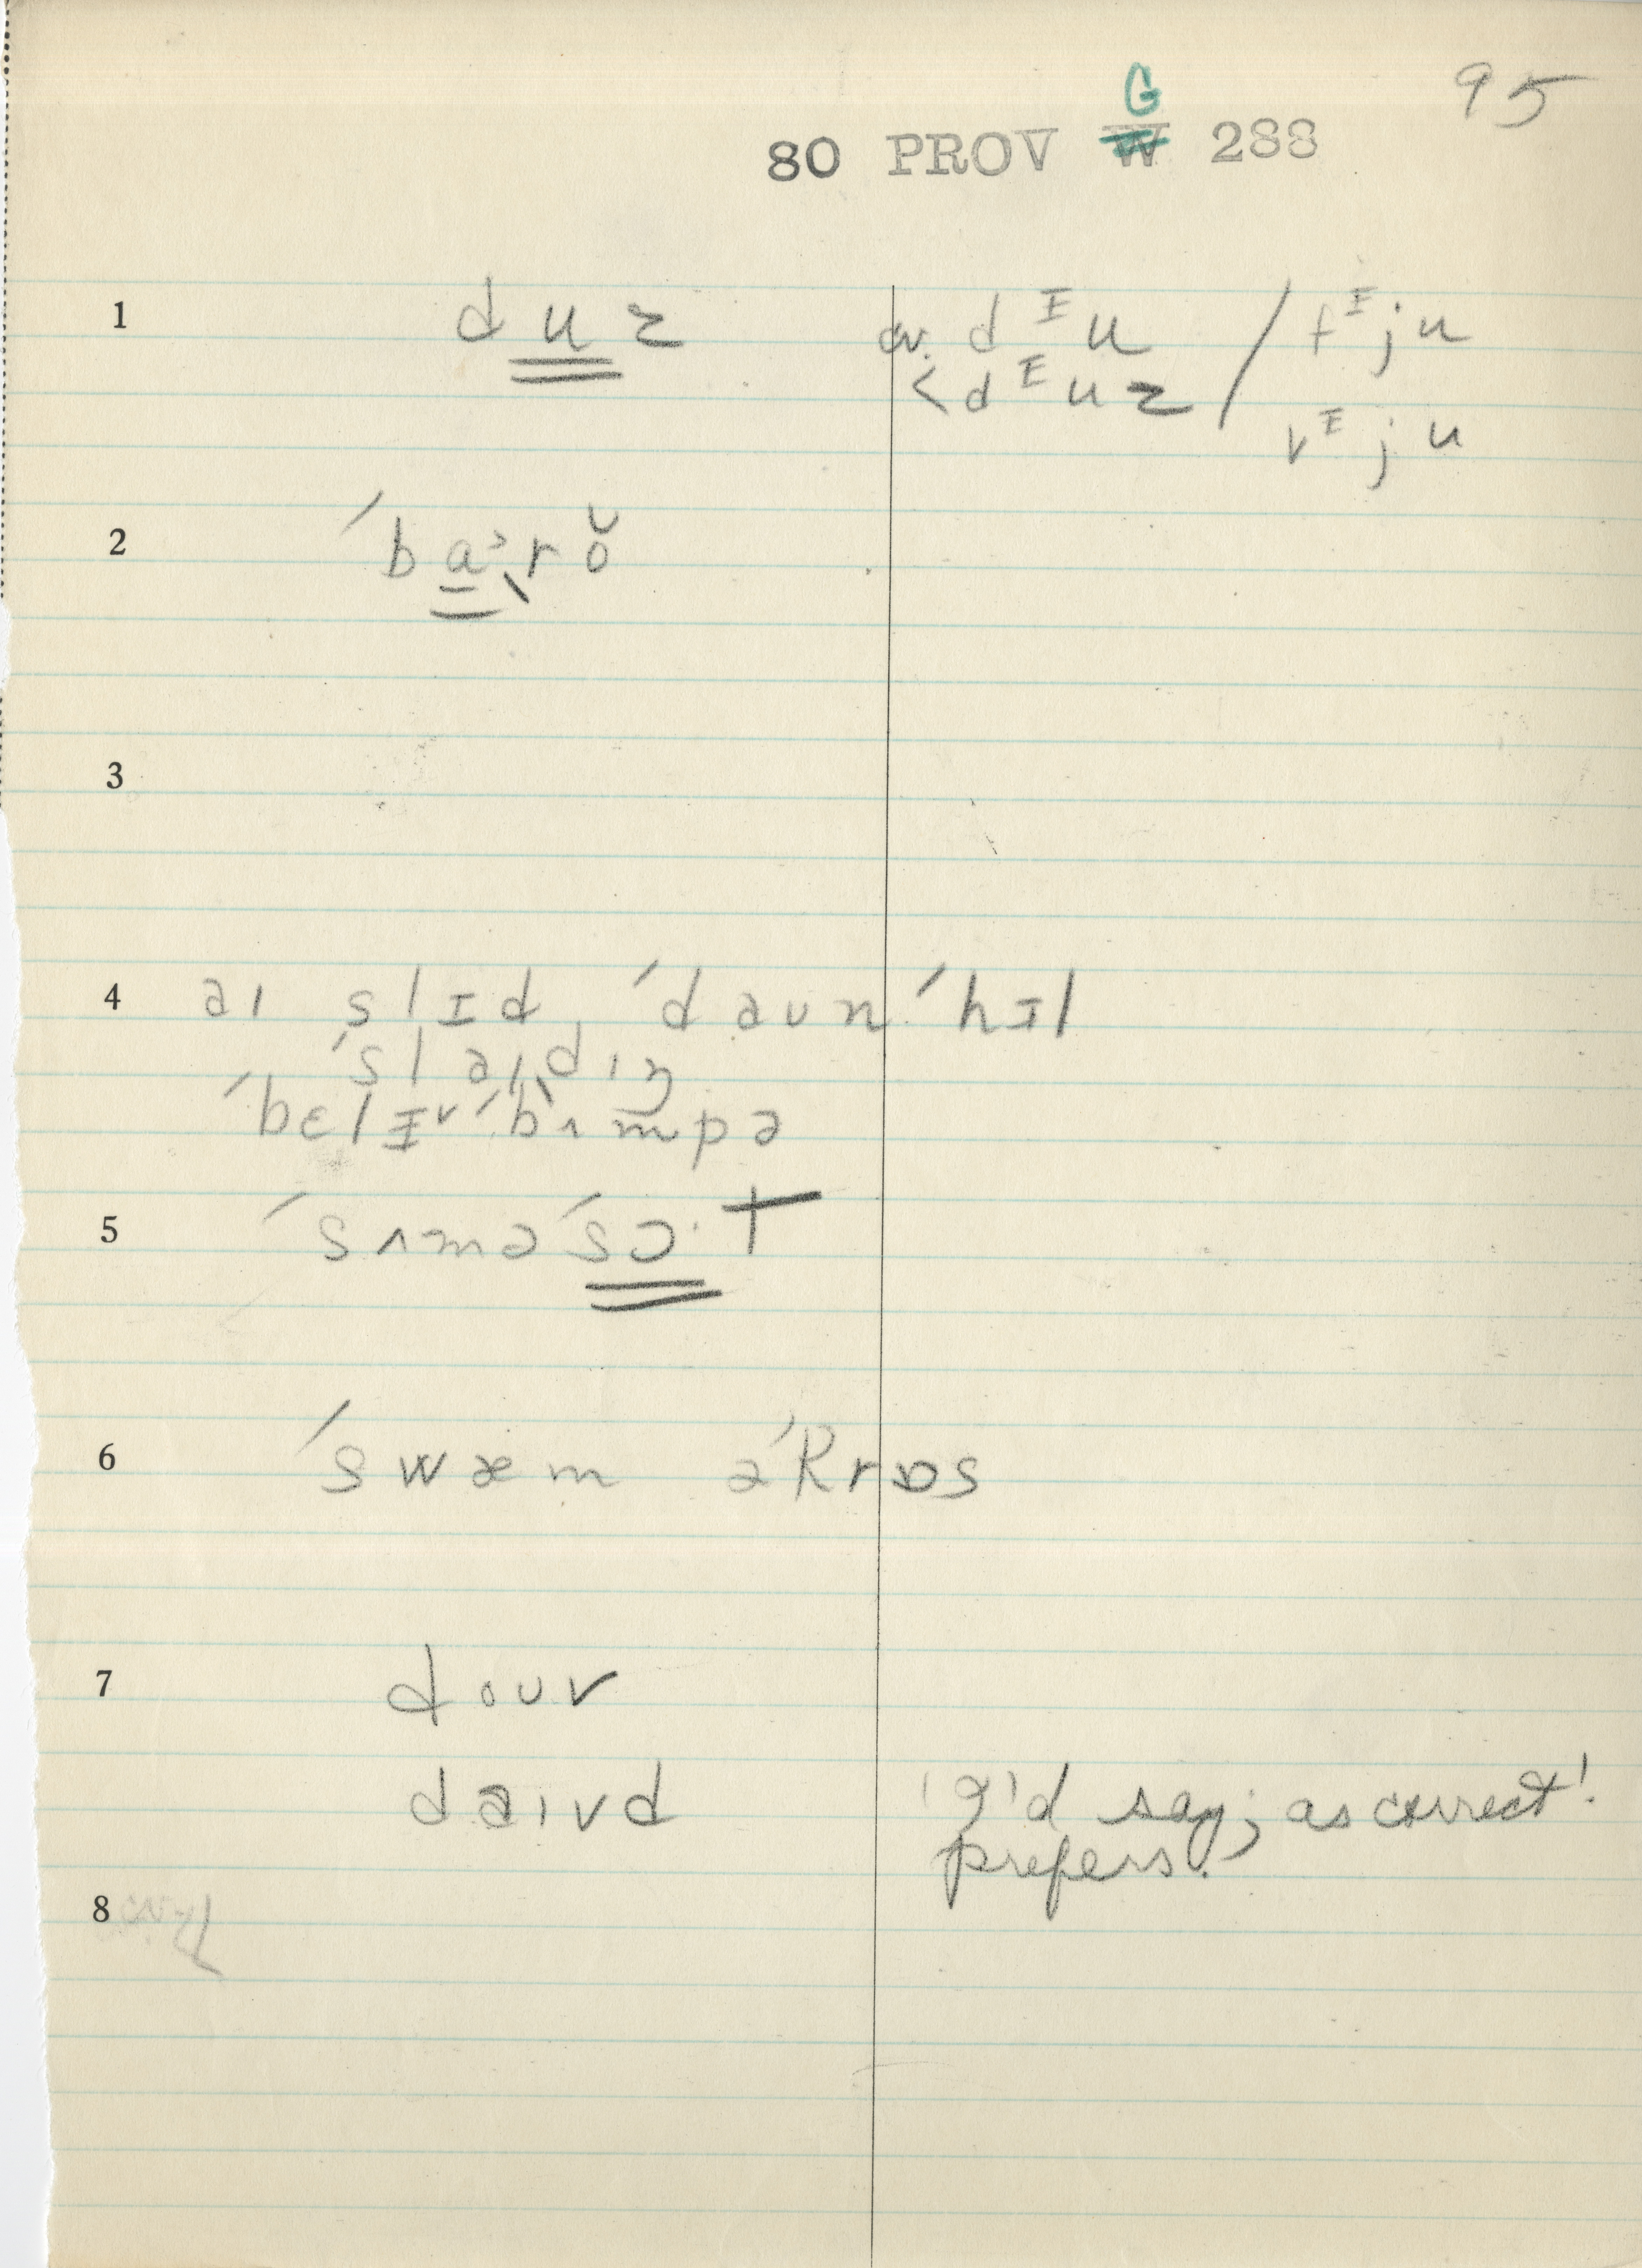 95
G
80 PROV W 288
1 duz cv. dᶦu / fᶦju
< dᶦuz vᶦju
2 ´ba˒rŏ
3
4 aɪ slɪd ´daʊn´hɪl
´slaɪdɪŋ
´bɛlɪ˅´bʌmpə
5 ´sʌmə´sɔ·t
6 ´swæm ə´krɒs
7 doʊv
daɪvd 'I'd say; as correct'.
prefers.
8